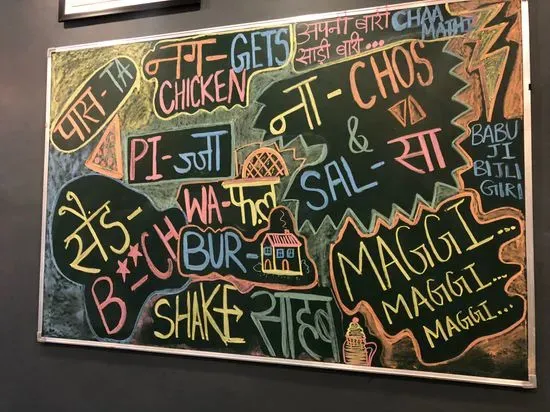 पास-TA
नग-GETS
CHICKEN
अपनी बारी
साड़ी बारी...
CHAA
MATHI
ना-CHOS
&
SAL-सा
PI-ज्जा
WA-फल
BUR-
सैंड-
B**CH
SHAKE साहब
MAGGI...
MAGGI...
MAGGI...
BABU
JI
BIJLI
GIRI